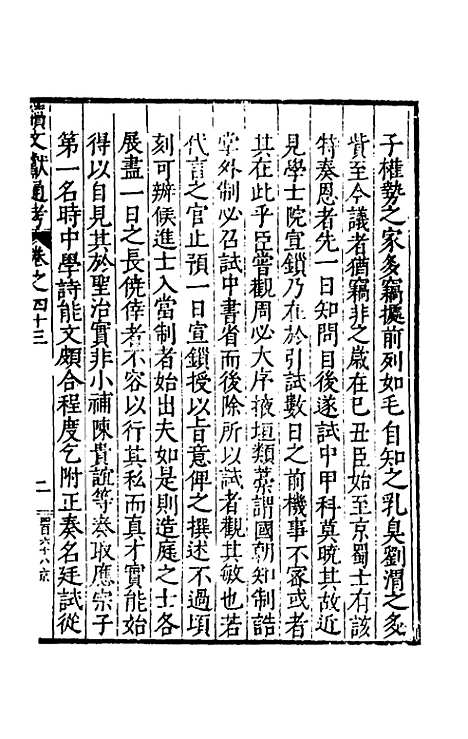 子權勢之家多竊擬前列如毛自知之乳臭劉渭之炙
貲至今議者猶竊非之歲在己丑臣始至京蜀士有該
特奏恩者先一日知問目後遂試中甲科莫曉其故近
見學士院宣鎖乃在於引試數日之前機事不審或者
其在此乎臣嘗觀周必大序掖垣類藁謂國朝知制誥
掌外制必召試中書省而後除所以試者觀其敏也若
代言之官止預一日宣鎖授以旨意俾之撰述不過頃
刻可辨候進士入當制者始出夫如是則造庭之士各
展盡一日之長僥倖者不容以行其私而真才實能始
得以自見其於聖治實非小補陳貴誼等奏取應宗子
第一名時中學詩能文頗合程度乞附正奏名廷試從
續文獻通考 卷之四十三
二 百六十八 京